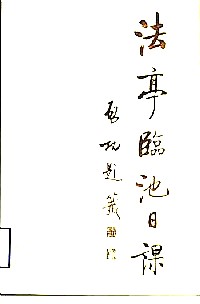 法亭臨池日課
啟功題籤